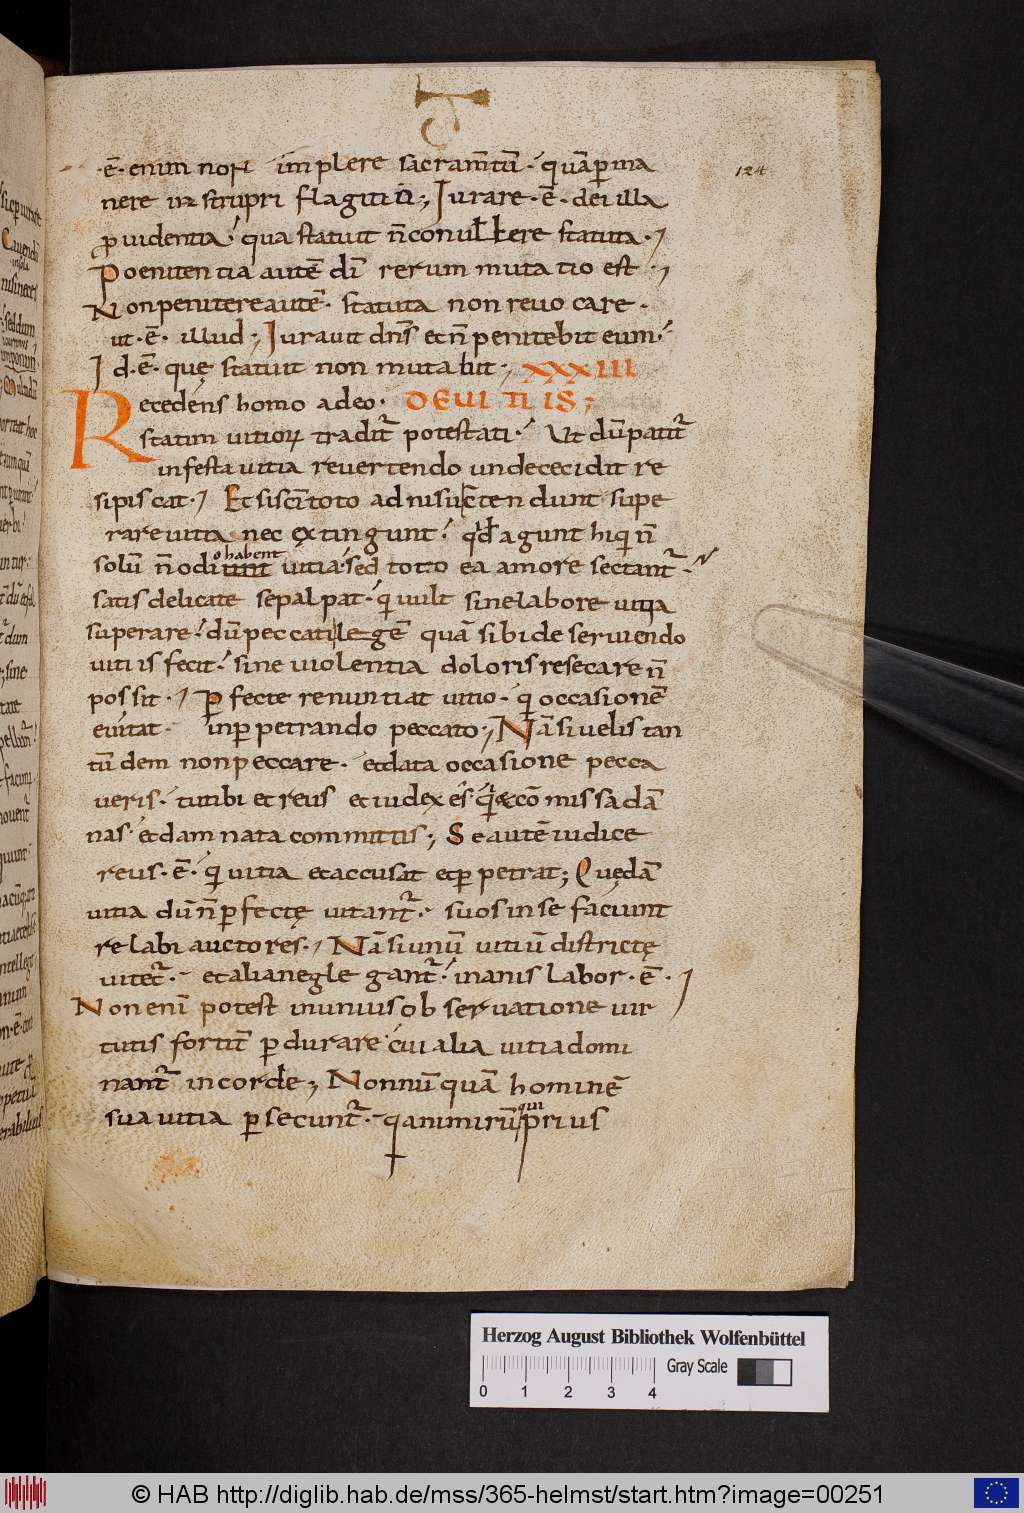 ·ē· enim non implere sacram̄tū· quā ꝑma
nere in strupri flagitiū; Iurare·ē· dei illa
ꝓuidentia· qua statuit n̄ conuellere statuta·
Poenitentia autē dī rerum mutatio est·
Non penitere autē· statuta non reuocare·
ut·ē· illud; Iurauit dn̄s et n̄ penitebit eum·
Id·ē· quę statuit non mutabit; XXXIII
Recedens homo a deo· DE UITIIS;
statim uitioꝝ tradit̄ potestati· Ut dū patit̄
infesta uitia reuertendo unde cecidit re
sipiscat· Et si sc̄i toto adnisu
rare uitia nec extingunt· qđ agunt hi qi n̄
solū n̄ odio habent uitia· sed toto ea amore sectant̄·
satis delicate se palpat· qi uult sine labore uitia
superare· dū peccati legē quā sibi deseruiendo
uitiis fecit· sine uiolentia doloris resecare n̄
possit· Ꝑfecte renuntiat uitio· qi occasionē
euitat· in ꝑpetrando peccato; Nā si uelis tan
tūdem non peccare· et data occasione pecca
ueris· tu tibi et reus et iudex es· qi et cōmissa dā
nas· et damnata committis; Se autē iudice
reus·ē· qi uitia et accusat et ꝑpetrat; Quędā
uitia dū n̄ ꝑfectę uitant̄· suos in se faciunt
relabi auctores· Nā si unū uitiū districtę
uitet̄· et alia neglegant̄· inanis labor·ē·
Non enī potest in unius obseruatione uir
tutis fortit̄ ꝑdurare cui alia uitia domi
nant̄ in corde; Nonnūquā hominē
sua uitia ꝑsecunt̄· prius
124
Herzog August Bibliothek Wolfenbüttel
Gray Scale
0 1 2 3 4
© HAB http://diglib.hab.de/mss/365-helmst/start.htm?image=00251